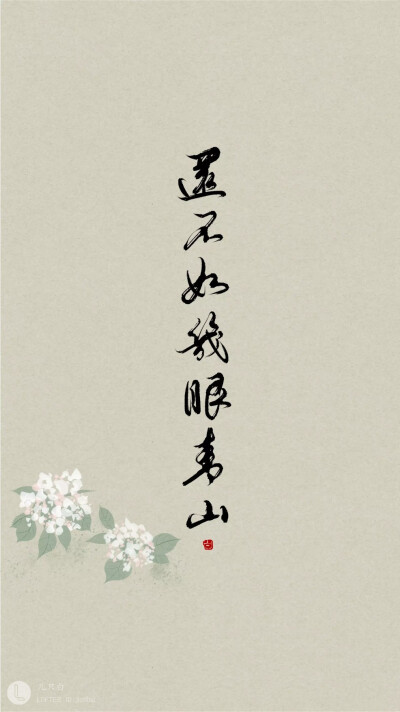 還不如幾眼青山